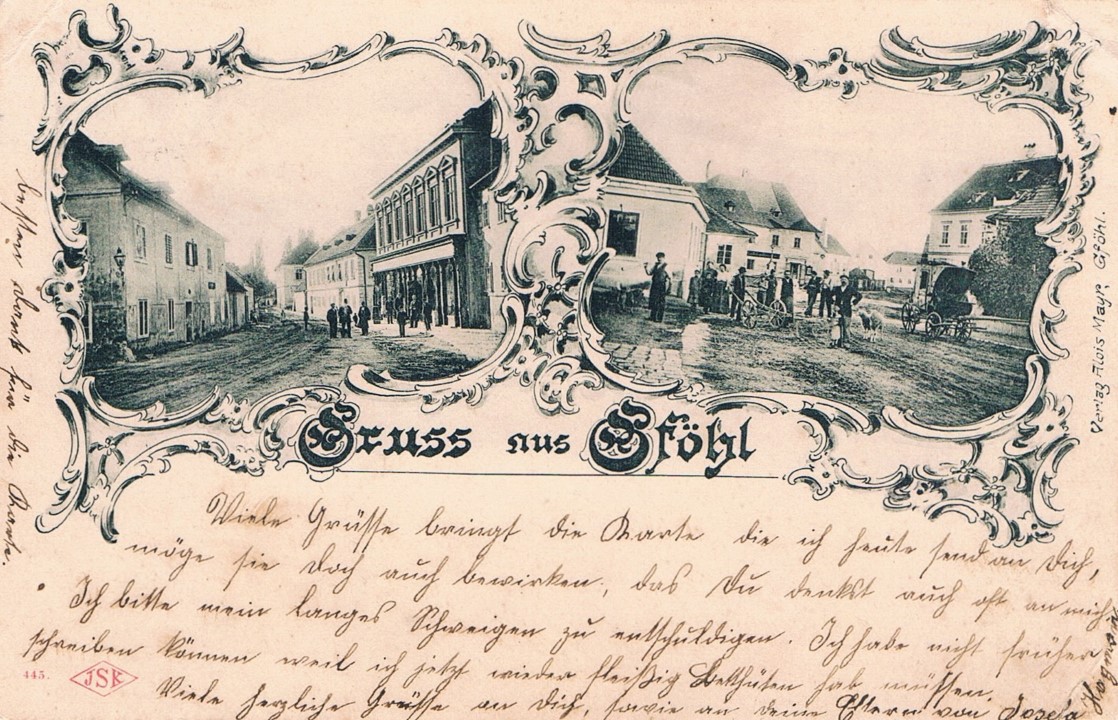 Gruss aus Gföhl
Viele Grüsse bringt die Karte die ich heute send an Dich,
möge sie doch auch bewirken, das Du denkst auch oft an mich.
Ich bitte mein langes Schweigen zu entschuldigen. Ich habe nicht früher
schreiben können weil ich jetzt wieder fleißig hab müssen.
Viele herzliche Grüsse an Dich, sowie an deine Eltern von
besten Dank für die Karte.
Verlag Alois Mayr. Gföhl.
445. JSK